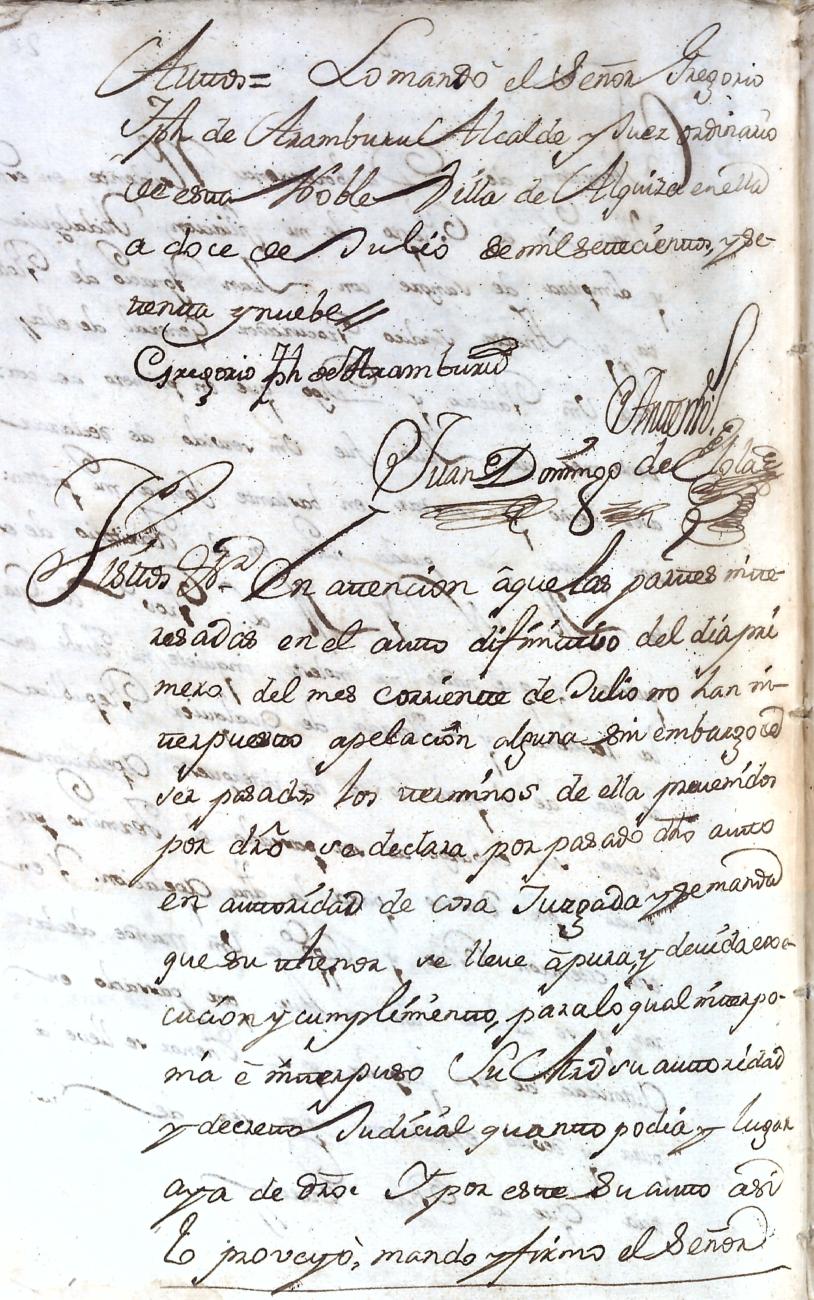 Auttos= Lo mandò el Señor Gregorio
Jph de Aramburu Alcalde y Juez ordinario
de esta Noble Villa de Alquiza en ella
a doce de Julio de mil settecientos, y se-
ttentta y nuebe
Gregorio Jph de Aramburu
Antemi
Juan Domingo de
Vistos En attencion â que las parttes intte-
resadas en el autto difinittivo del dia pri
mero del mes corriente de Julio no han in-
tterpuestto apelaciòn alguna sin embargo de
ser pasados los tterminos de ella prevenidos
por dro se declara por pasado dho autto
en auttoridad de cosa Juzgada y se manda
que su thenor se lleve â pura, y devida exe-
cuciòn y cumplimientto, para lo qual intterpo-
nia è intterpuso Su Mrd su auttoridad
y decretto Judicial quantto podia y lugar
aya de dro. Y por estte su autto asi
lo proveyò, mando y firmo el Señor